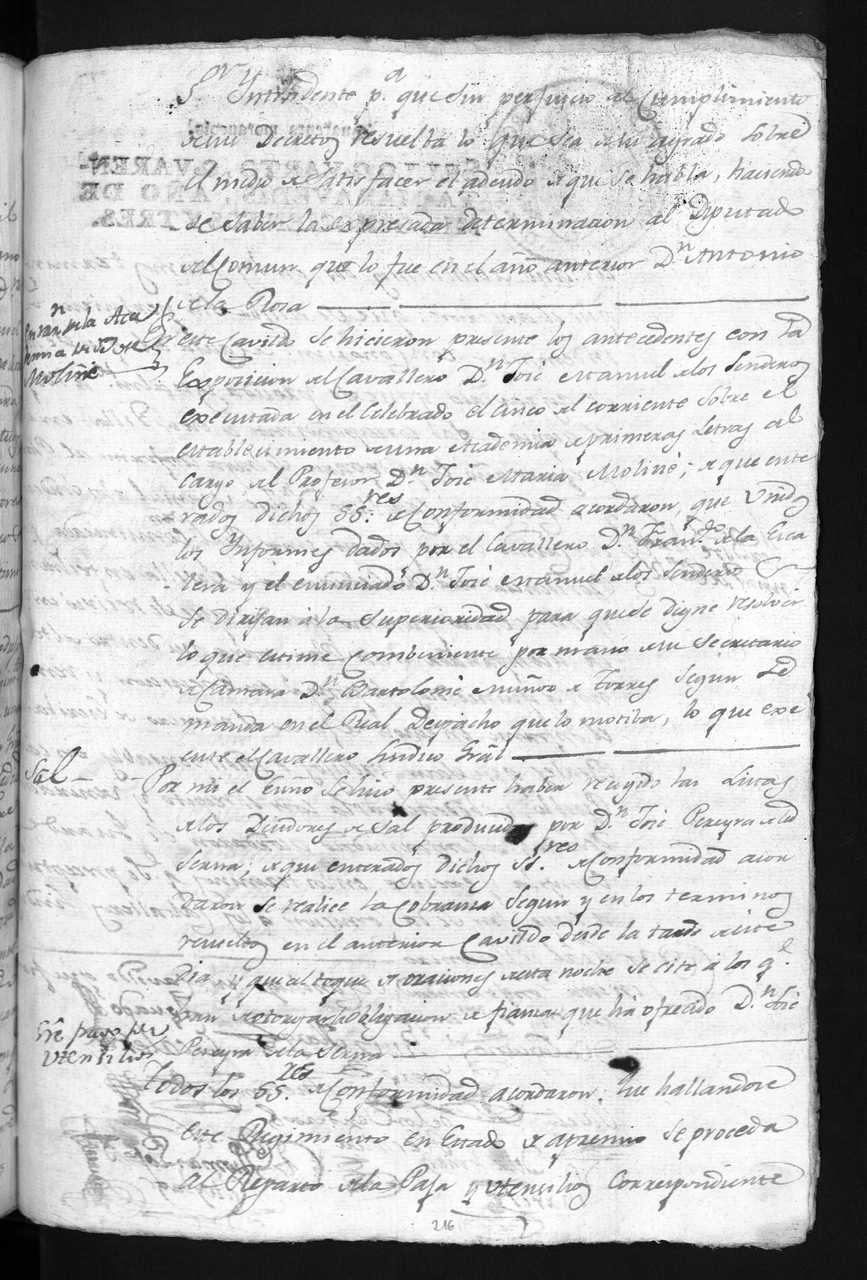 Sr. Yntendente pa. que sin perjuicio al Cumplimiento
de su Decreto resuelva lo que sea de su agrado sobre
el medio de satisfacer el adeudo de que se habla, haciendo
se saber la expresada determinacion al Diputado
del Comun que lo fue en el año anterior Dn. Antonio
de la Rosa
Academia
Moliné
En este Cavildo se hicieron presente los antecedentes con la
Exposicion del Cavallero Dn. José Manuel de los Senderos
executada en el Celebrado el cinco del corriente sobre el
establecimiento de una Academia de primeras Letras al
Cargo del Profesor Dn. José Maria Moliné; de que ente
rados dichos SSres. de Conformidad acordaron, que Unidos
los Ynformes dados por el Cavallero Dn. Franco. de la Esca
lera y el enunciado Dn. José Manuel de los Senderos
se dirijan a la Superioridad para que se digne resolver
lo que estime combeniente por mano de su Secretario
de Camara Dn. Bartolomé Muñoz de Torres segun se
manda en el Real Despacho que lo motiba, lo que exe
cute el Cavallero Sindico Gral
Sal
Por mi el essno se hizo presente haber recojido las Listas
de los Deudores de Sal producidas por Dn. José Pereyra de la
Serna, de que enterados dichos SSres. de Conformidad acor
daron se realice la Cobranza segun y en los terminos
resueltos en el anterior Cavildo desde la tarde de este
Dia, y que al toque de oraciones de esta noche se cite a los q.e
han de otorgar la obligacion de fianza que ha ofrecido Dn. José
Pereyra de la Serna
Utensilios
Todos los SSres. de Conformidad acordaron, que hallandose
este Regimiento en Estado de apremio se proceda
al Reparto de la Paja y utensilios Correspondiente
216